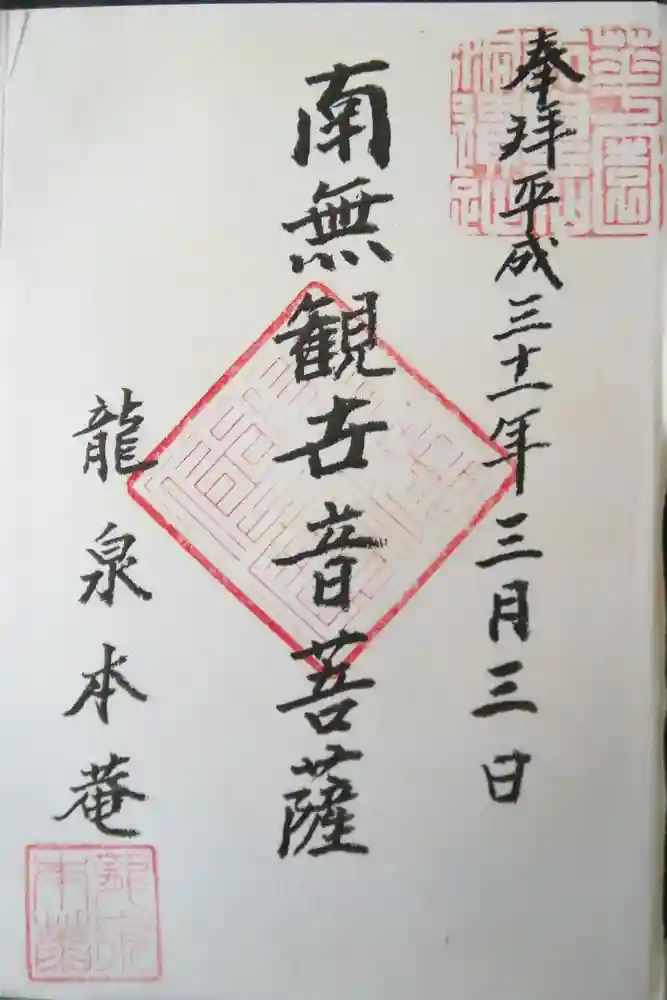 奉拝平成三十一年三月三日
南無観世音菩薩
龍泉本庵
龍泉
本菴